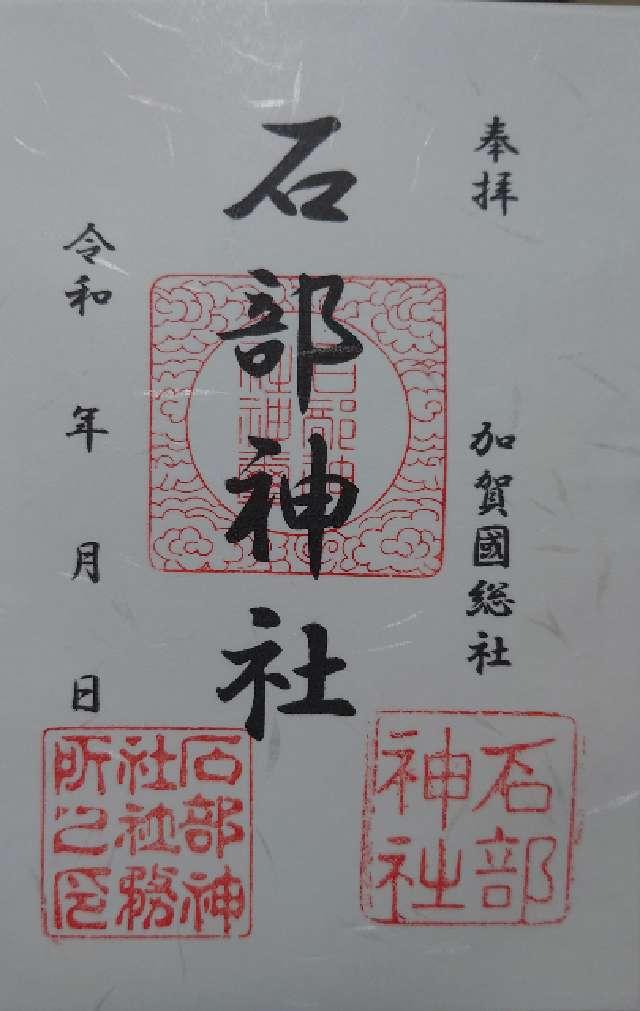 奉拝
加賀國総社
石部神社
令和 年 月 日
石部
神社
石部神
社社務
所之印